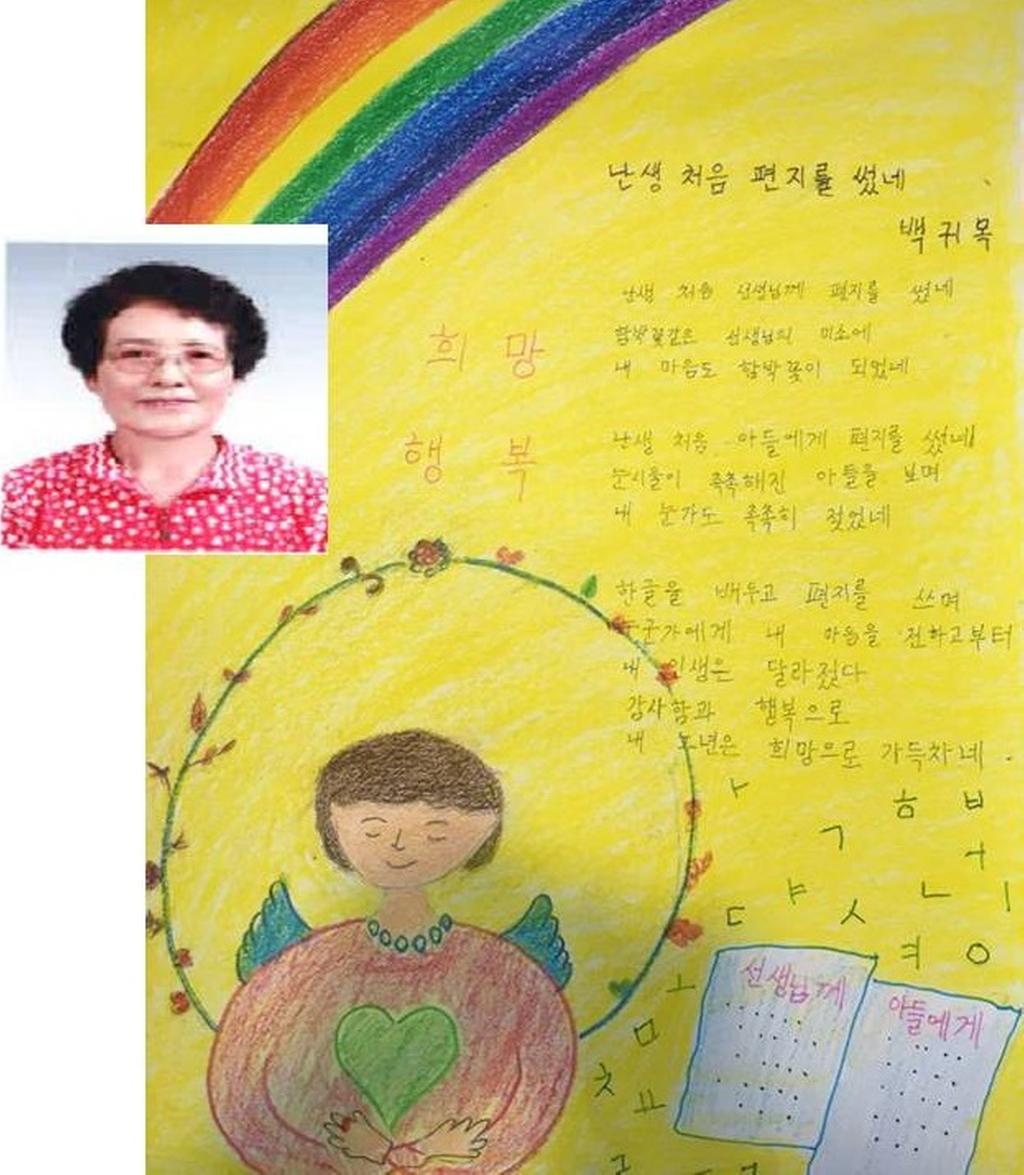 난생 처음 편지를 썼네
백귀목
난생 처음 선생님께 편지를 썼네
함박꽃같은 선생님의 미소에
내 마음도 함박꽃이 되었네
난생 처음 아들에게 편지를 썼네
눈시울이 촉촉해진 아들을 보며
내 눈가도 촉촉히 젖었네
한글을 배우고 편지를 쓰며
누군가에게 내 마음을 전하고부터
내 인생은 달라졌다
감사함과 행복으로
내 노년은 희망으로 가득차네.
희망
행복
ㅏ ㅎ ㅂ
ㄱ ㅓ
ㄷ ㅑ ㅅ ㄴ ㅣ
ㅕ ㅇ
ㅗ
ㅁ
ㅊ ㅛ
선생님께
아들에게